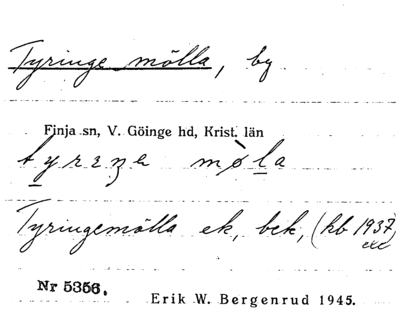 Tyringe mölla, by
Finja sn, V. Göinge hd, Krist. län
møla
Tyringemölla ek, bek, (kb 1937,
Nr 5356.
Erik W. Bergenrud 1945.